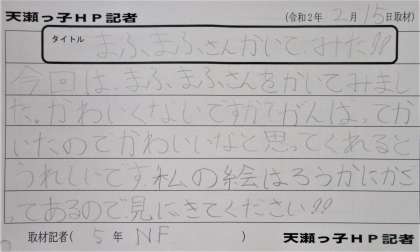 天瀬っ子HP記者 (令和2年 2月 15日取材)
タイトル まふまふさんかいてみた!!
今回は、まふまふさんをかいてみまし
た。かわいくないですか?がんばってか
いたのでかわいいなと思ってくれると
うれしいです。私の絵はろうかにかざ
ってあるので見にきてください!!
取材記者( 5年 NF ) 天瀬っ子HP記者